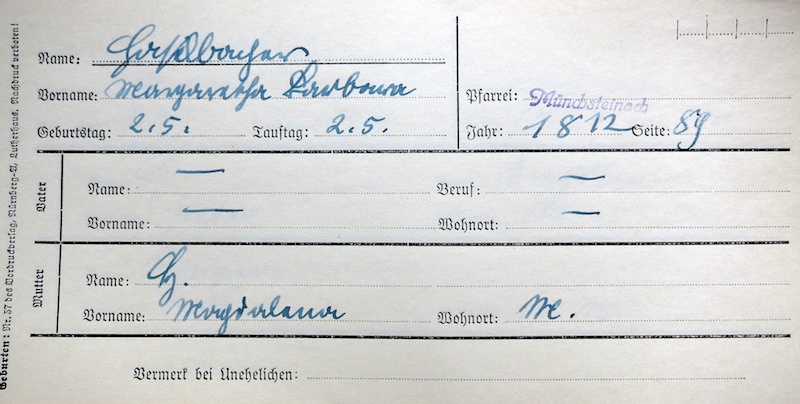 Name: Haselbacher
Vorname: Margaretha Barbara
Pfarrei: Münchsteinach
Geburtstag: 2.5. Tauftag: 2.5.
Jahr: 1812 Seite: 89
Vater
Name: — Beruf: —
Vorname: — Wohnort: —
Mutter
Name: H.
Vorname: Magdalena Wohnort: M.
Vermerk bei Unehelichen:
Geburten: Nr. 57 des Vordruckverlag, Nürnberg-A, Lutherhaus. Nachdruck verboten!